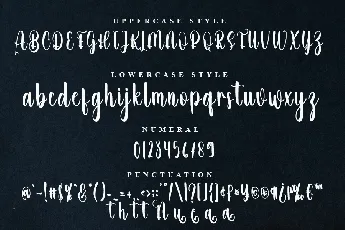 UPPERCASE STYLE
ABCDEFGHIJKLMNOPQRSTUVWXYZ
LOWERCASE STYLE
abcdefghijklmnopqrstuvwxyz
NUMERAL
0123456789
PUNCTUATION